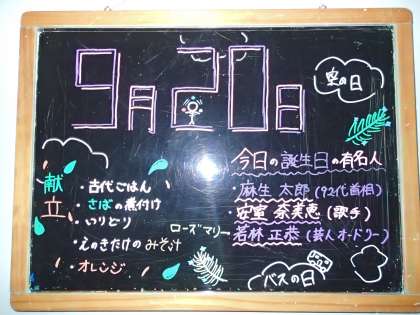 9月20日
空の日
今日の誕生日の有名人
献立
・古代ごはん
・さばの煮付け
・いりどり
・えのきたけのみそ汁
・オレンジ
・麻生 太郎(92代首相)
・安室 奈美恵(歌手)
・若林 正恭(芸人オードリー)
ローズマリー
バスの日